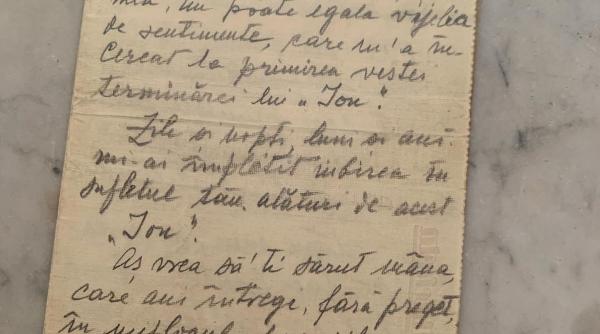 nu poate egala vijelia
de sentimente, care m'a în-
cercat la primirea vestei
terminărei lui „Ion".
Zile și nopți, luni și ani
mi-ai împletit iubirea în
sufletul tău, alături de acest
„Ion".
Aș vrea să'ți sărut mâna,
care ani întregi, fără preget,
în